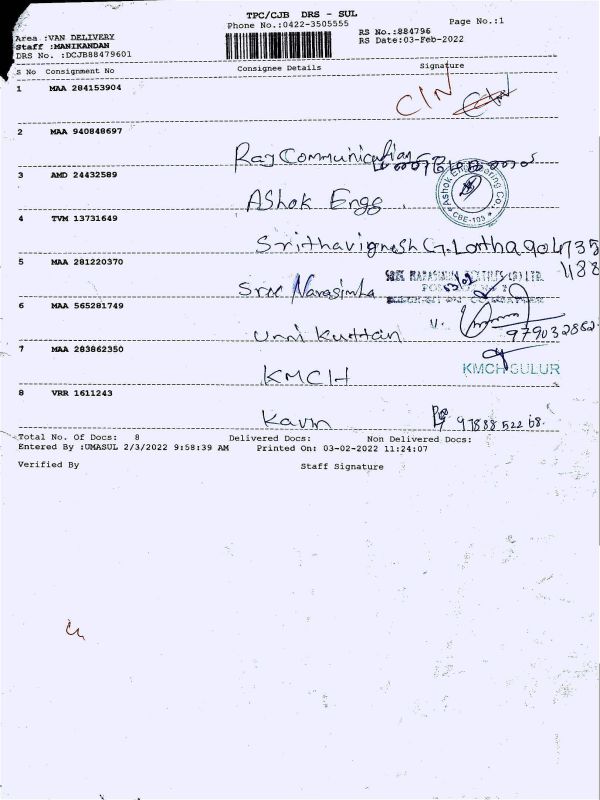 TPC/CJB DRS - SUL
Phone No.:0422-3505555
Page No.:1
Area :VAN DELIVERY
Staff :MANIKANDAN
DRS No. :DCJB88479601
RS No.:884796
RS Date:03-Feb-2022
S No Consignment No Consignee Details Signature
1 MAA 284153904
C/N
2 MAA 940848697
Raj Communication
3 AMD 24432589
Ashok Engg.
Ashok Engineering Co.,
CBE-103
4 TVM 13731649
Srithavignesh G.
5 MAA 281220370
Sree Narasimha
6 MAA 565281749
Unni Kuttan
7 MAA 283862350
KMCH
KMCH SULUR
8 VRR 1611243
Kavin
Total No. Of Docs: 8 Delivered Docs: Non Delivered Docs:
Entered By :UMASUL 2/3/2022 9:58:39 AM Printed On: 03-02-2022 11:24:07
Verified By Staff Signature